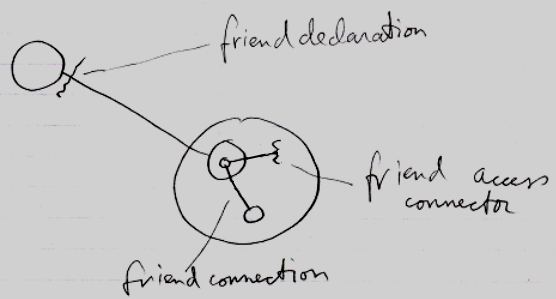 friend declaration
friend access
connector
friend connection